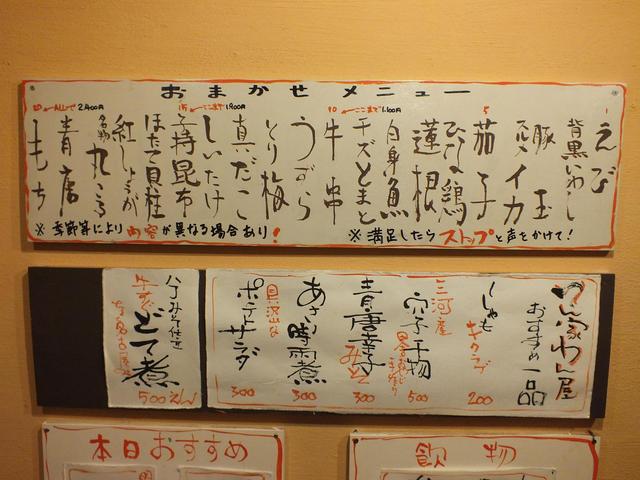 おまかせメニュー
1 えび
背黒いわし
豚玉
スルメイカ
5 茄子
ひね鶏
蓮根
白身魚
チーズとまと
10 ←ここまで1,100円
牛串
うずら
とり梅
真だこ
しいたけ
15 ←ここまで1,900円
子持昆布
ほたて貝柱
紅しょうが
名物 丸ごろ
青唐
20 ←ALLで2,400円
もち
※季節等により内容が異なる場合あり!
※満足したらストップと声をかけて!
おすすめ一品
ししゃも
キクラゲ
200
三河産
穴子干物
500
青唐辛子みそ
300
あさり時雨煮
300
具沢山な
ポテトサラダ
300
八丁みそ仕立
牛すじどて煮
500えん
本日おすすめ
飲物